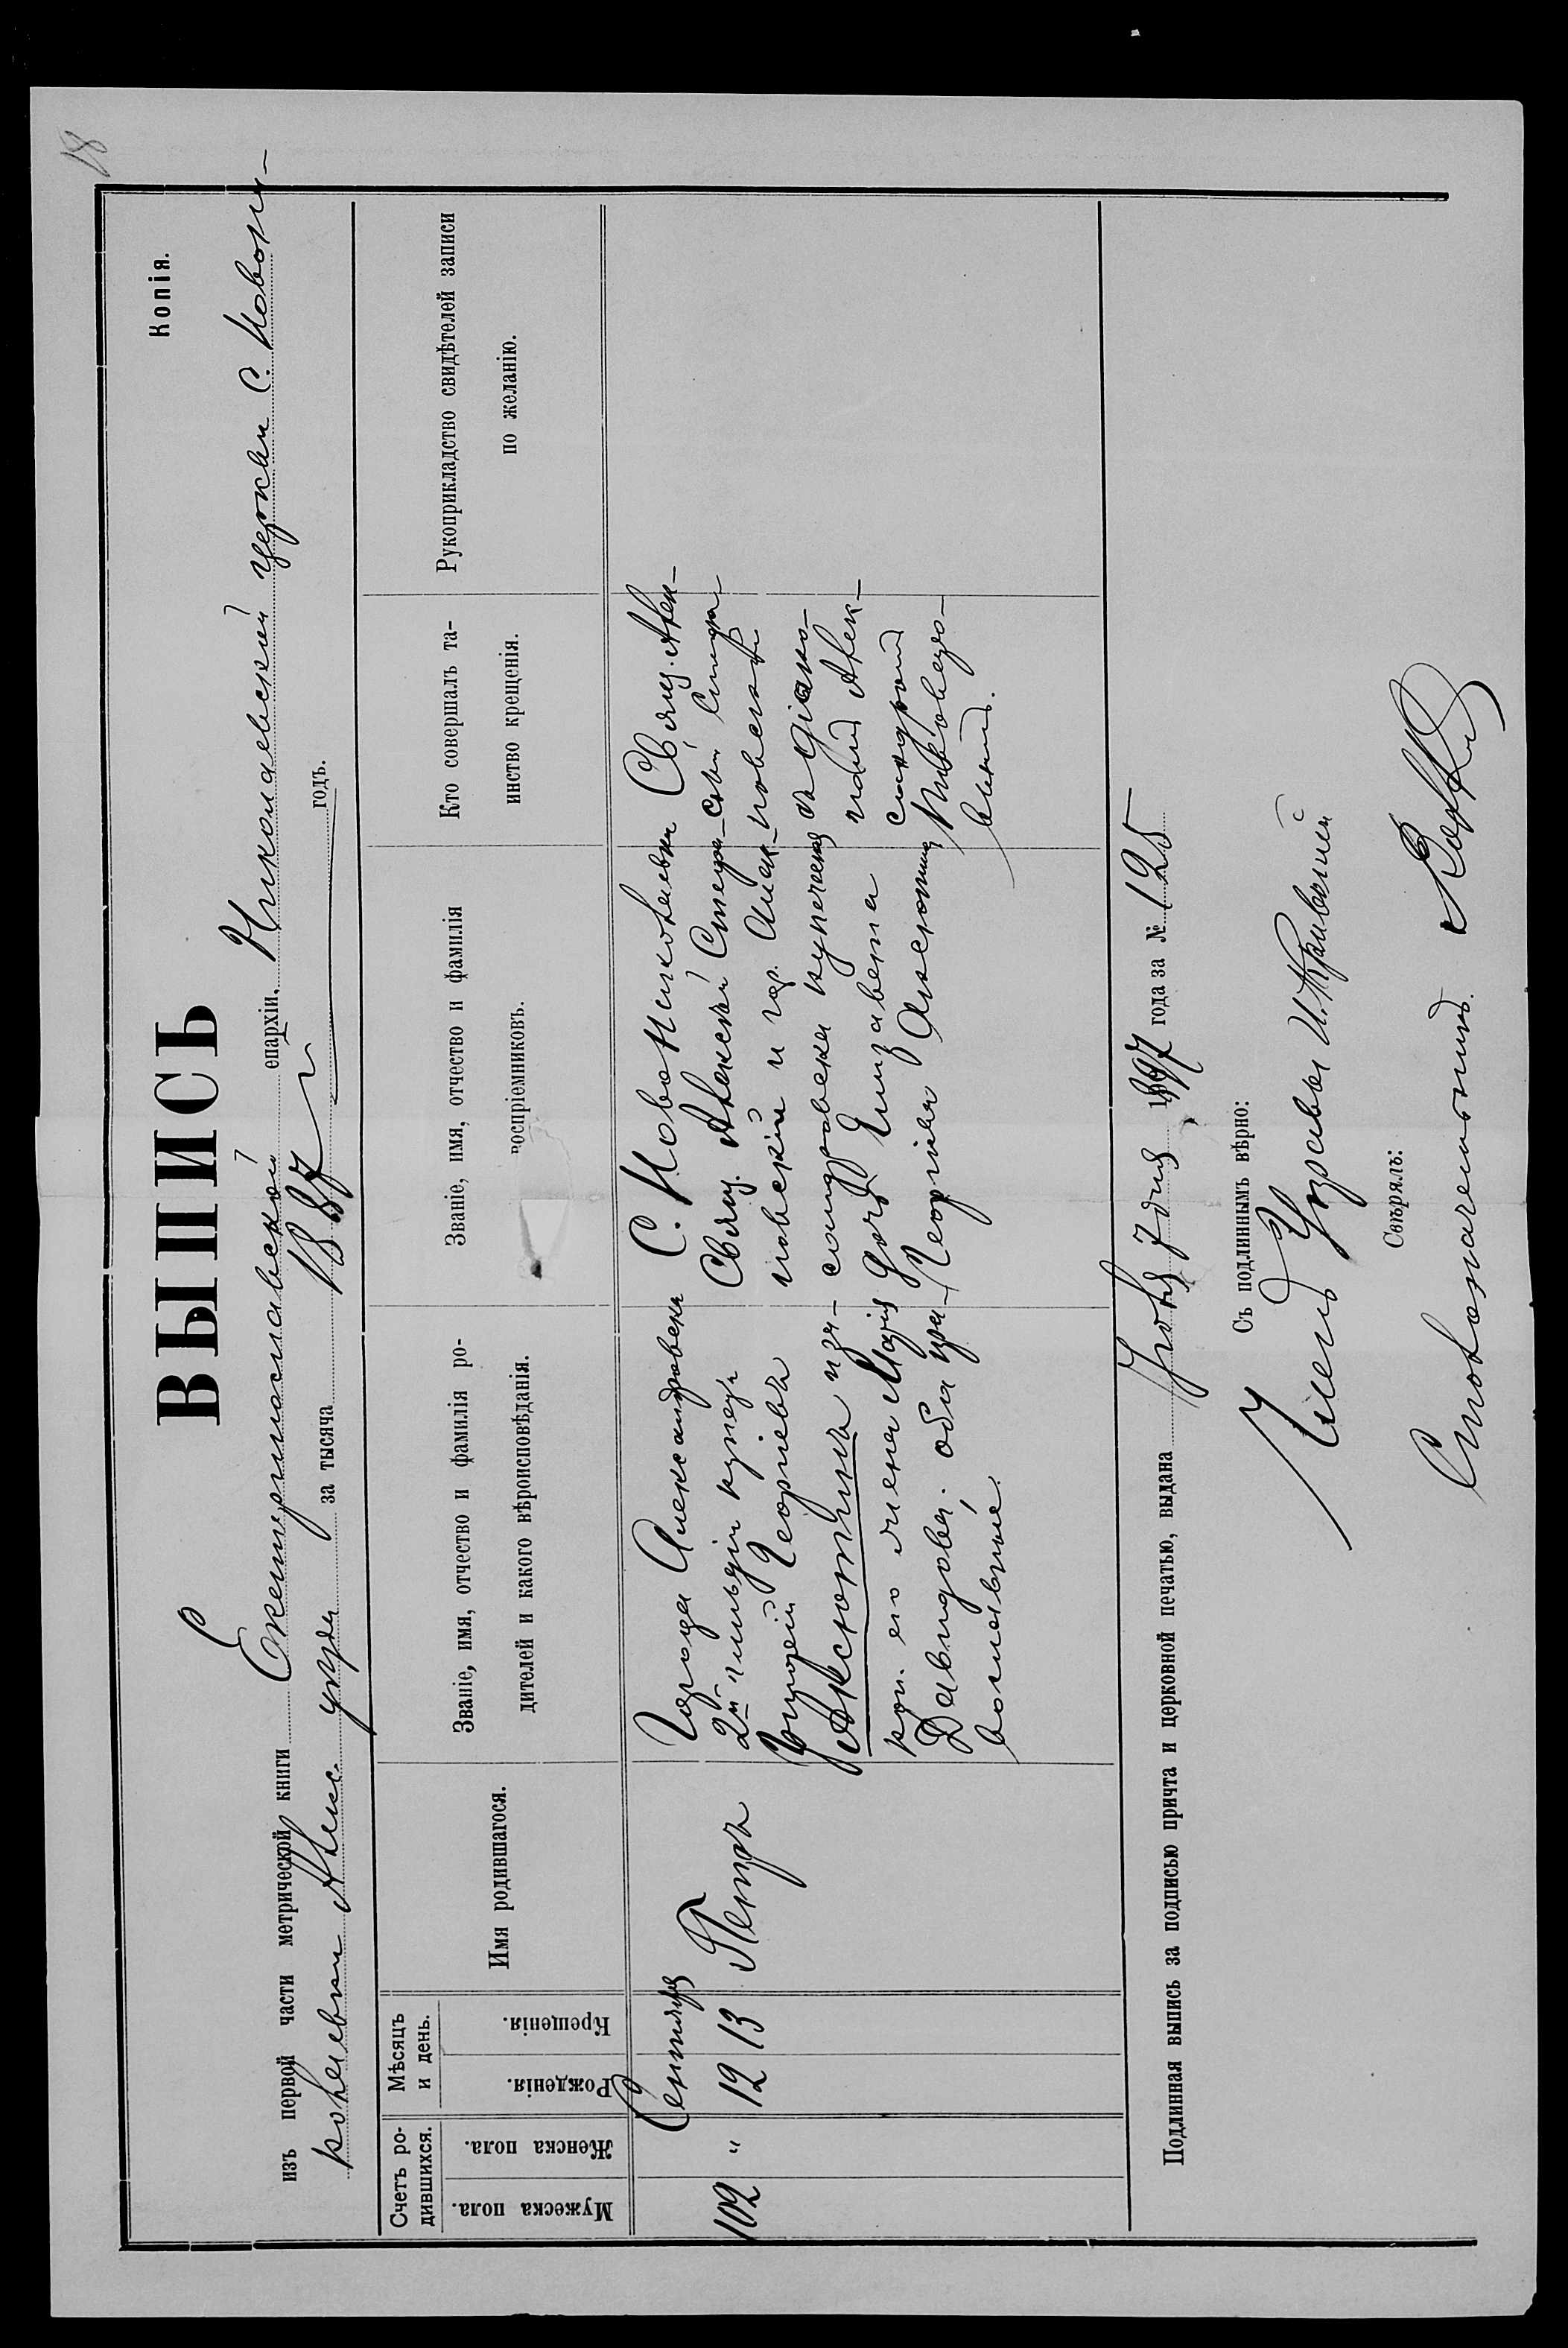 18
Копія.
ВЫПИСЬ
изъ первой части метрической книги Екатеринославской епархіи, Николаевской церкви с. Новони-
колаевки Алекс. уѣзда за тысяча 1887 г годъ.
Счетъ ро-
дившихся.
Мужеска пола.
Женска пола.
Мѣсяцъ
и день.
Рожденія.
Крещенія.
Имя родившагося.
Званіе, имя, отчество и фамилія ро-
дителей и какого вѣроисповѣданія.
Званіе, имя, отчество и фамилія
воспріемниковъ.
Кто совершалъ та-
инство крещенія.
Рукоприкладство свидѣтелей записи
по желанію.
Сентября
102 " 12 13
Петръ
Города Александровска
2й гильдіи купецъ
Георгіевъ
Аксютинъ и за-
кон. его жена Марія
Давидова. оба пра-
вославные.
С. Новониколаевки
Свящ. Алексей
и гор. Алек-
сандровска купеческая
дочь Елизавета
Георгіева Аксютина
Свящ. Алек-
съ діако-
номъ Алек-
сандромъ
Подлинная выпись за подписью причта и церковной печатью, выдана Іюля 7 дня 1897 года за № 125
Съ подлиннымъ вѣрно:
Членъ Управы
Свѣрялъ:
Столоначальникъ